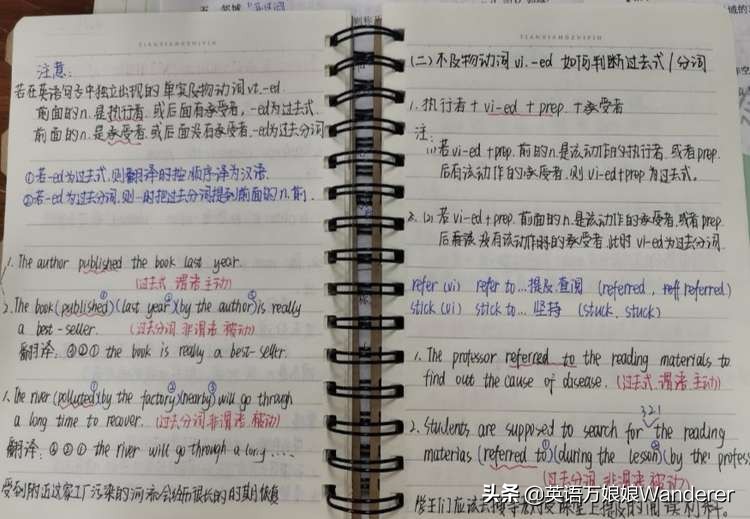 TIANXIANGZHIPIN
注意:
若在英语句子中独立出现的单实及物动词vt.-ed
前面的n.是执行者.或后面有承受者,-ed为过去式.
前面的n.是承受者.或后面没有承受者.-ed为过去分词
①若-ed为过去式.则翻译时按顺序译为汉语.
②若-ed为过去分词.则一时把过去分词提到前面的n.前.
1. The author published the book last year.
(过去式 谓语 主动)
2. The book (published①) (last year②) (by the author③) is really
a best-seller. (过去分词 非谓语 被动)
翻译: ③②① the book is really a best-seller.
1. The river (polluted①) (by the factory②) (nearby③) will go through
a long time to recover. (过去分词.非谓语.被动)
翻译: ③②① the river will go through a long ....
受到附近这家工厂污染的河流会经历很长的时期恢复
TIANXIANGZHIPIN
(二) 不及物动词 vi. -ed 如何判断过去式/分词
1. 执行者 + vi-ed + prep. + 承受者
注:
(1) 若 vi-ed + prep. 前的n.是该动作的执行者.或者prep.
后有该动作的承受者.则 vi-ed+prep 为过去式.
2. (2) 若 vi-ed + prep. 前面的n.是该动作的承受者.或者prep
后 没有该动作的承受者.此时 vi-ed为过去分词.
refer (vi) refer to... 提及.查阅 (referred, referred)
stick (vi) stick to... 坚持 (stuck, stuck)
1. The professor referred to the reading materials to
find out the cause of disease. (过去式.谓语.主动)
321
2. Students are supposed to search for the reading
materias (referred to①) (during the lesson②) (by the profess
(过去分词 非谓语 被动)
学生们应该去搜寻 课堂上提及的阅读材料.
头条 @英语万娘娘Wanderer